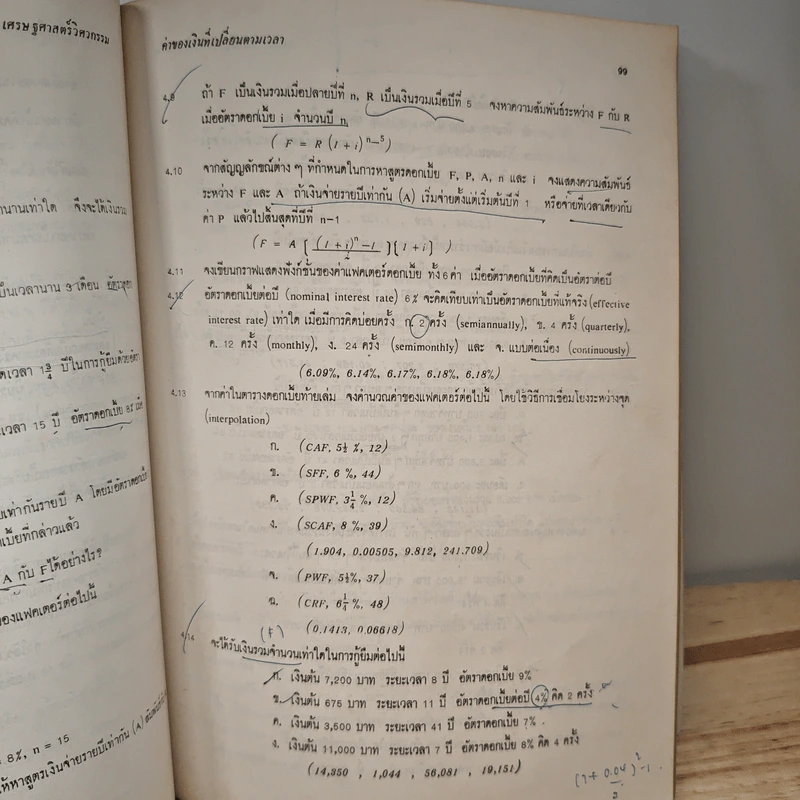 เศรษฐศาสตร์วิศวกรรม
นานเท่าใด จึงจะได้เงินรวม
เป็นเวลานาน 3 เดือน
เวลา 1¾ ปีในการกู้ยืมด้วย
เวลา 15 ปี อัตราดอกเบี้ย 8%
เท่ากันรายปี A โดยมีอัตราดอกเบี้ย
เบี้ยที่กล่าวแล้ว
A กับ F ได้อย่างไร?
ของแฟคเตอร์ต่อไปนี้
8%, n = 15
ให้หาสูตรเงินจ่ายรายปีเท่ากัน (A)
ค่าของเงินที่เปลี่ยนตามเวลา
99
4.9 ถ้า F เป็นเงินรวมเมื่อปลายปีที่ n, R เป็นเงินรวมเมื่อปีที่ 5 จงหาความสัมพันธ์ระหว่าง F กับ R
เมื่ออัตราดอกเบี้ย i จำนวนปี n
( F = R (1+i)ⁿ⁻⁵ )
4.10 จากสัญญลักษณ์ต่าง ๆ ที่กำหนดในการหาสูตรดอกเบี้ย F, P, A, n และ i จงแสดงความสัมพันธ์
ระหว่าง F และ A ถ้าเงินจ่ายรายปีเท่ากัน (A) เริ่มจ่ายตั้งแต่เริ่มต้นปีที่ 1 หรือจ่ายที่เวลาเดียวกับ
ค่า P แล้วไปสิ้นสุดที่ปีที่ n-1
(F = A [ (1+i)ⁿ-1 / i ][ 1+i] )
4.11 จงเขียนกราฟแสดงฟังก์ชั่นของค่าแฟคเตอร์ดอกเบี้ย ทั้ง 6 ค่า เมื่ออัตราดอกเบี้ยที่คิดเป็นอัตราต่อปี
4.12 อัตราดอกเบี้ยต่อปี (nominal interest rate) 6% จะคิดเทียบเท่าเป็นอัตราดอกเบี้ยที่แท้จริง (effective
interest rate) เท่าใด เมื่อมีการคิดบ่อยครั้ง ก. 2 ครั้ง (semiannually), ข. 4 ครั้ง (quarterly),
ค. 12 ครั้ง (monthly), ง. 24 ครั้ง (semimonthly) และ จ. แบบต่อเนื่อง (continuously)
(6.09%, 6.14%, 6.17%, 6.18%, 6.18%)
4.13 จากค่าในตารางดอกเบี้ยท้ายเล่ม จงคำนวณค่าของแฟคเตอร์ต่อไปนี้ โดยใช้วิธีการเชื่อมโยงระหว่างจุด
(interpolation)
ก. (CAF, 5½ %, 12)
ข. (SFF, 6 %, 44)
ค. (SPWF, 3¼ %, 12)
ง. (SCAF, 8 %, 39)
(1.904, 0.00505, 9.812, 241.709)
จ. (PWF, 5½%, 37)
ฉ. (CRF, 6¼ %, 48)
(0.1413, 0.06618)
(F)
4.14 จะได้รับเงินรวมจำนวนเท่าใดในการกู้ยืมต่อไปนี้
ก. เงินต้น 7,200 บาท ระยะเวลา 8 ปี อัตราดอกเบี้ย 9%
ข. เงินต้น 675 บาท ระยะเวลา 11 ปี อัตราดอกเบี้ยต่อปี 4% คิด 2 ครั้ง
ค. เงินต้น 3,500 บาท ระยะเวลา 41 ปี อัตราดอกเบี้ย 7%
ง. เงินต้น 11,000 บาท ระยะเวลา 7 ปี อัตราดอกเบี้ย 8% คิด 4 ครั้ง
(14,350 , 1,044 , 56,081 , 19,151)
(1 + 0.04/2)² - 1